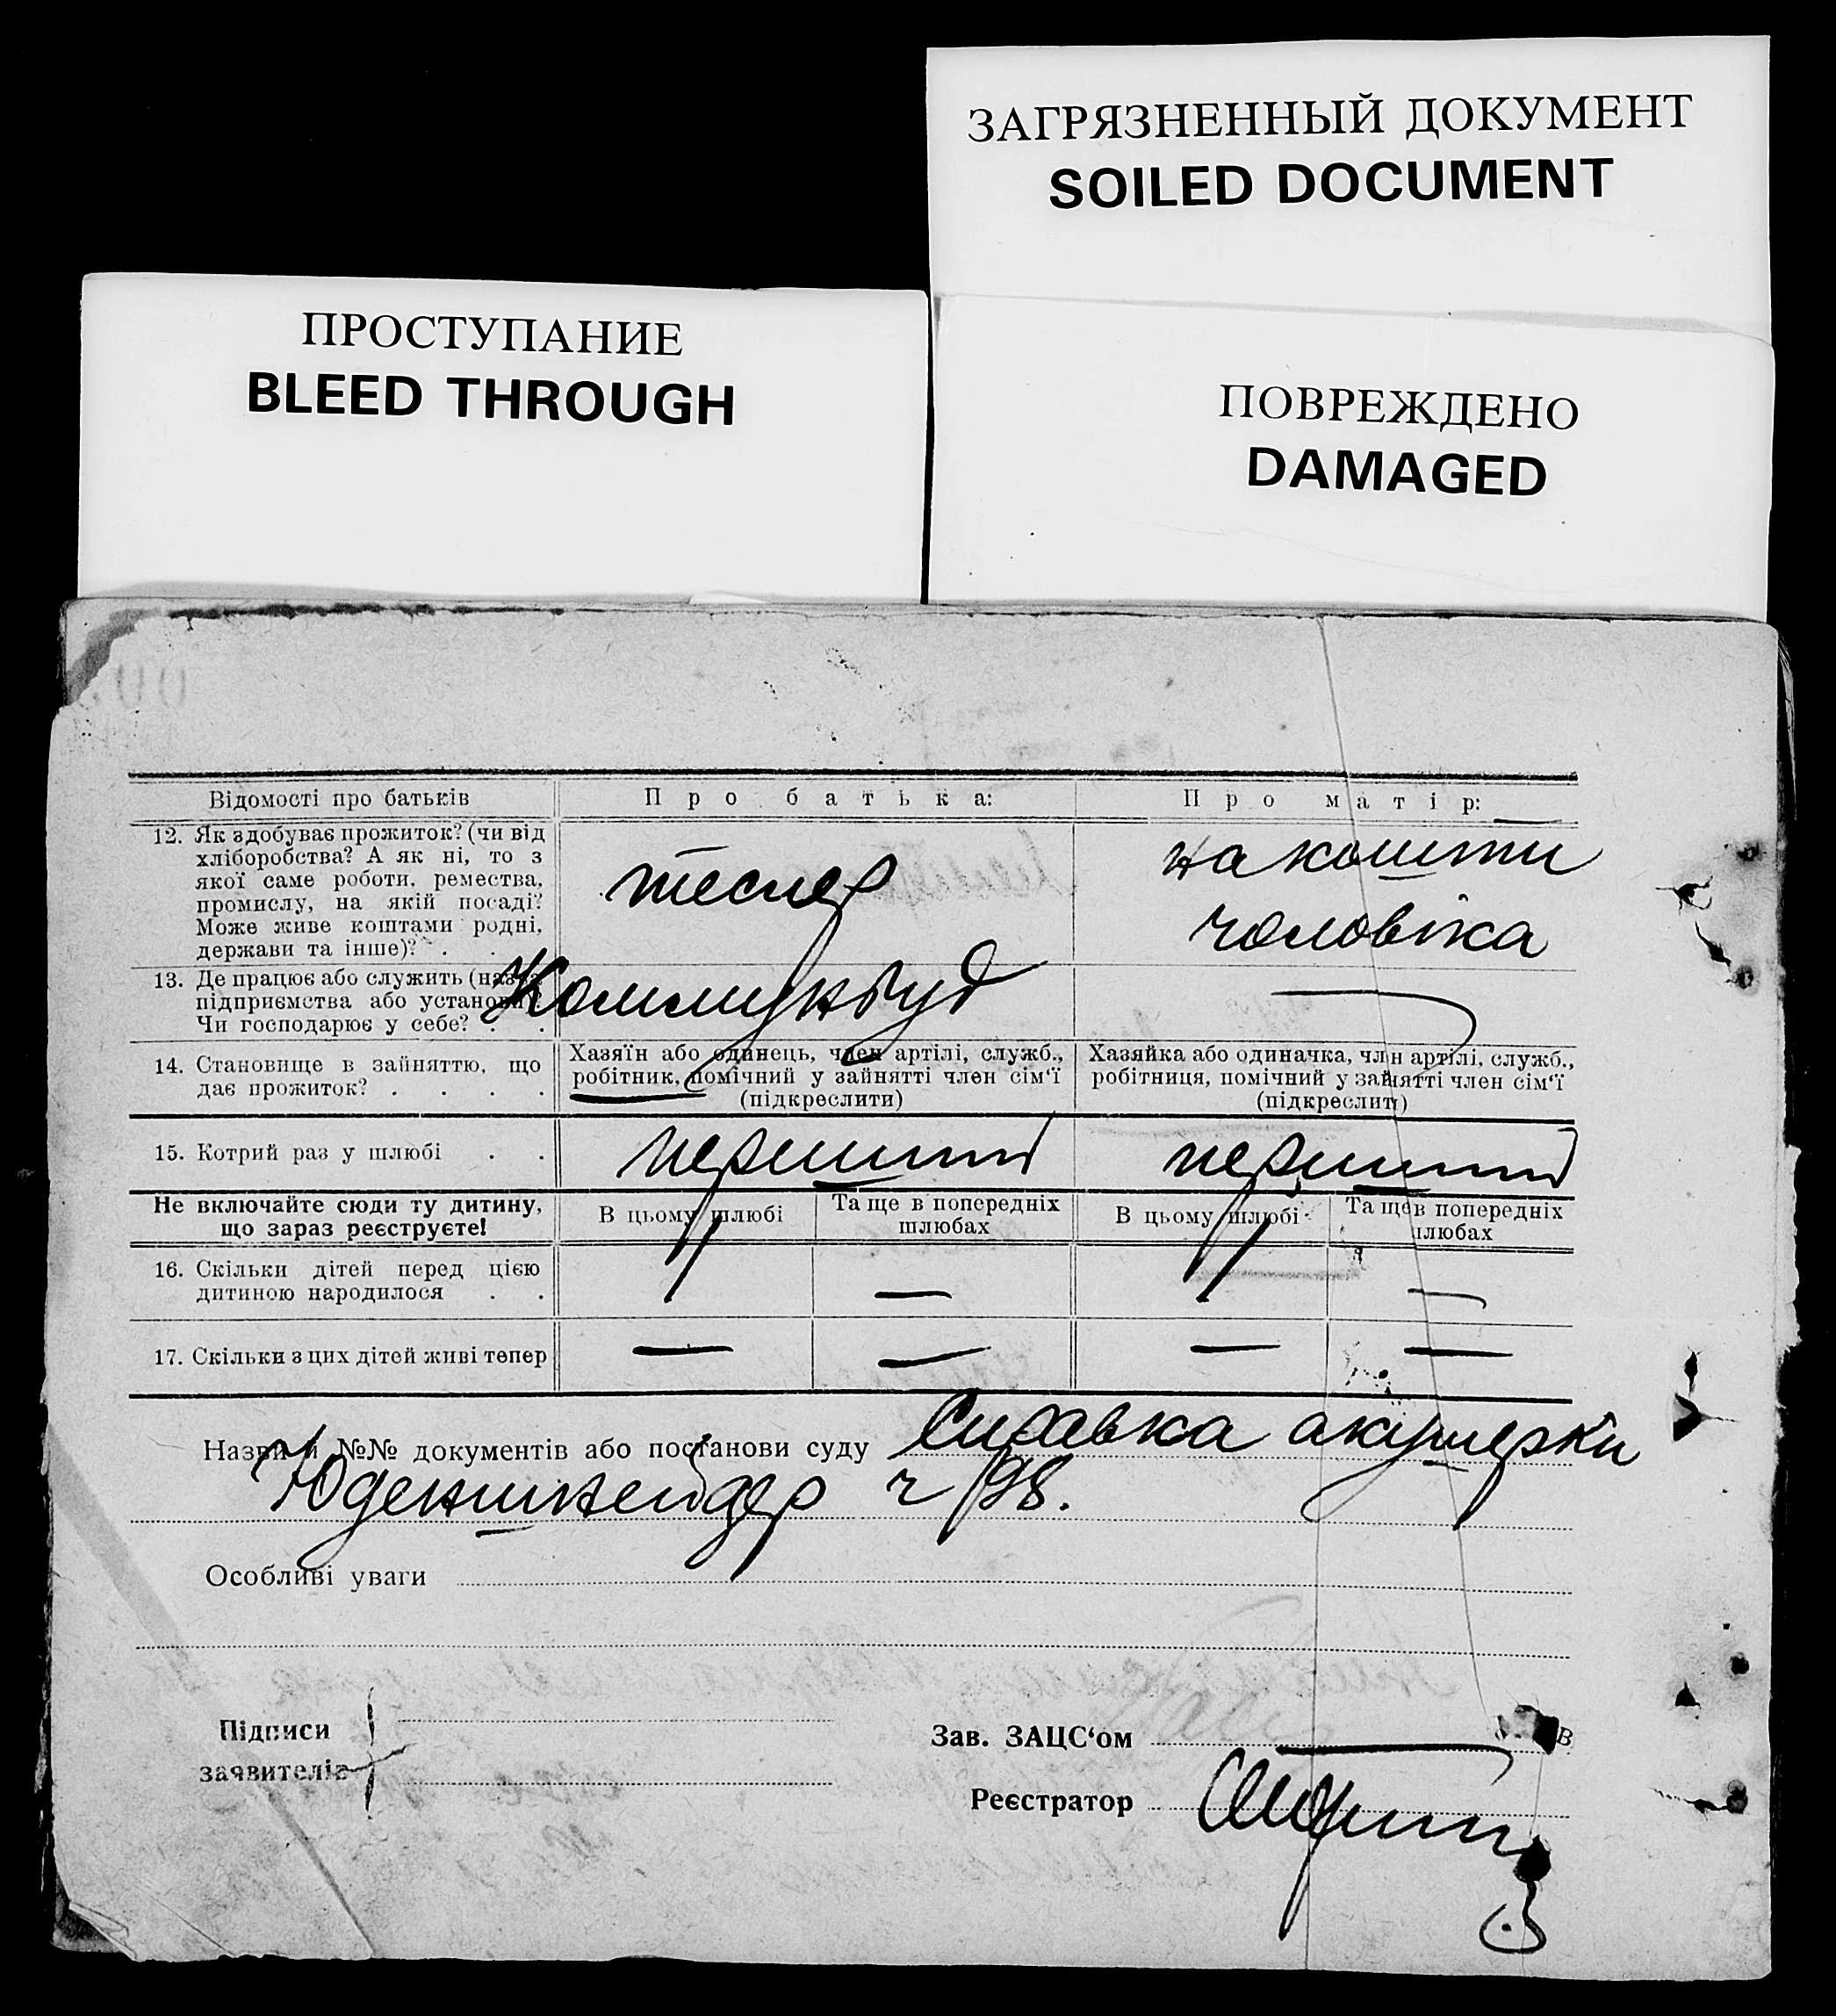 ЗАГРЯЗНЕННЫЙ ДОКУМЕНТ
SOILED DOCUMENT
ПРОСТУПАНИЕ
BLEED THROUGH
ПОВРЕЖДЕНО
DAMAGED
Відомості про батьків
Про батька:
Про матір:
12. Як здобуває прожиток? (чи від
хліборобства? А як ні, то з
якої саме роботи, ремества,
промислу, на якій посаді?
Може живе коштами родні,
держави та інше)? .
тесляр
на кошти
чоловіка
13. Де працює або служить (назва
підприємства або установи)?
Чи господарює у себе? . .
Коммунбуд
—
14. Становище в зайняттю, що
дає прожиток? . . . .
Хазяїн або одинець, член артілі, служб.,
робітник, помічний у зайнятті член сім‘ї
(підкреслити)
Хазяйка або одиначка, член артілі, служб.,
робітниця, помічний у зайнятті член сім‘ї
(підкреслити)
15. Котрий раз у шлюбі . .
перший
перший
Не включайте сюди ту дитину,
що зараз реєструєте!
В цьому шлюбі
Та ще в попередніх
шлюбах
В цьому шлюбі
Та ще в попередніх
шлюбах
16. Скільки дітей перед цією
дитиною народилося . .
— —
17. Скільки з цих дітей живі тепер
— — — —
Назви й №№ документів або постанови суду Справка акушерки
Юденшнейдер ч 198.
Особливі уваги
Підписи
заявителів
Зав. ЗАЦС‘ом
в
Реєстратор